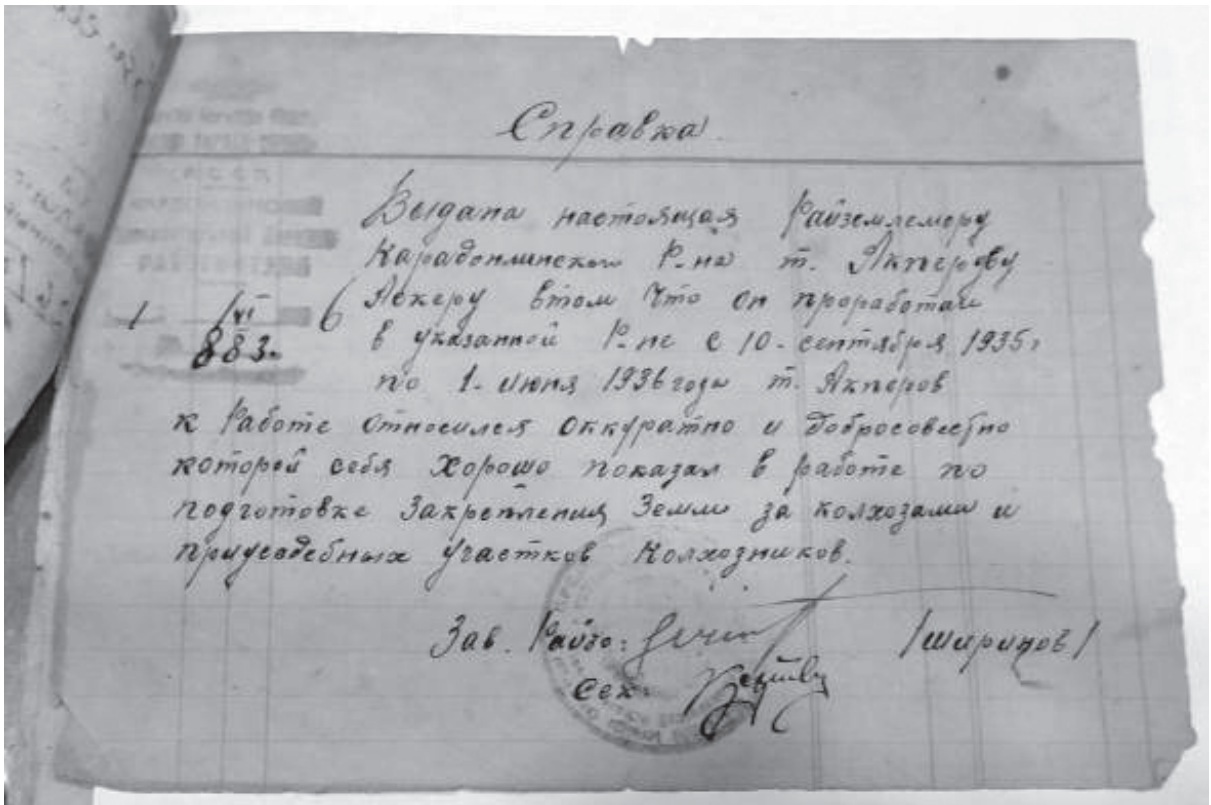 Справка.
Выдана настоящая Райземлемеру
Карадонлинского Р-на т. Акперову
Аскеру втом Что он проработал
в указанной Р-не с 10-сентября 1935г
по 1-июня 1936 года т. Акперов
к Работе относился оккуратно и добросовестно
которой себя Хорошо показал в работе по
подготовке Закрепления Земли за колхозами и
приусадебных участков Колхозников.
1 VI 6
883.
Зав. Райзо: /ширинов/
Сек.